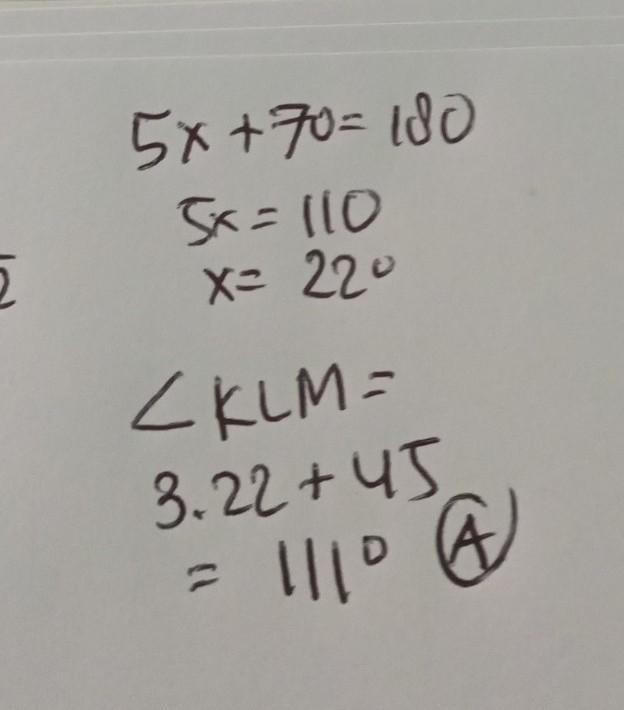 5x + 70 = 180
5x = 110
x = 22°
2
∠KLM =
3.22 + 45
= 111° A